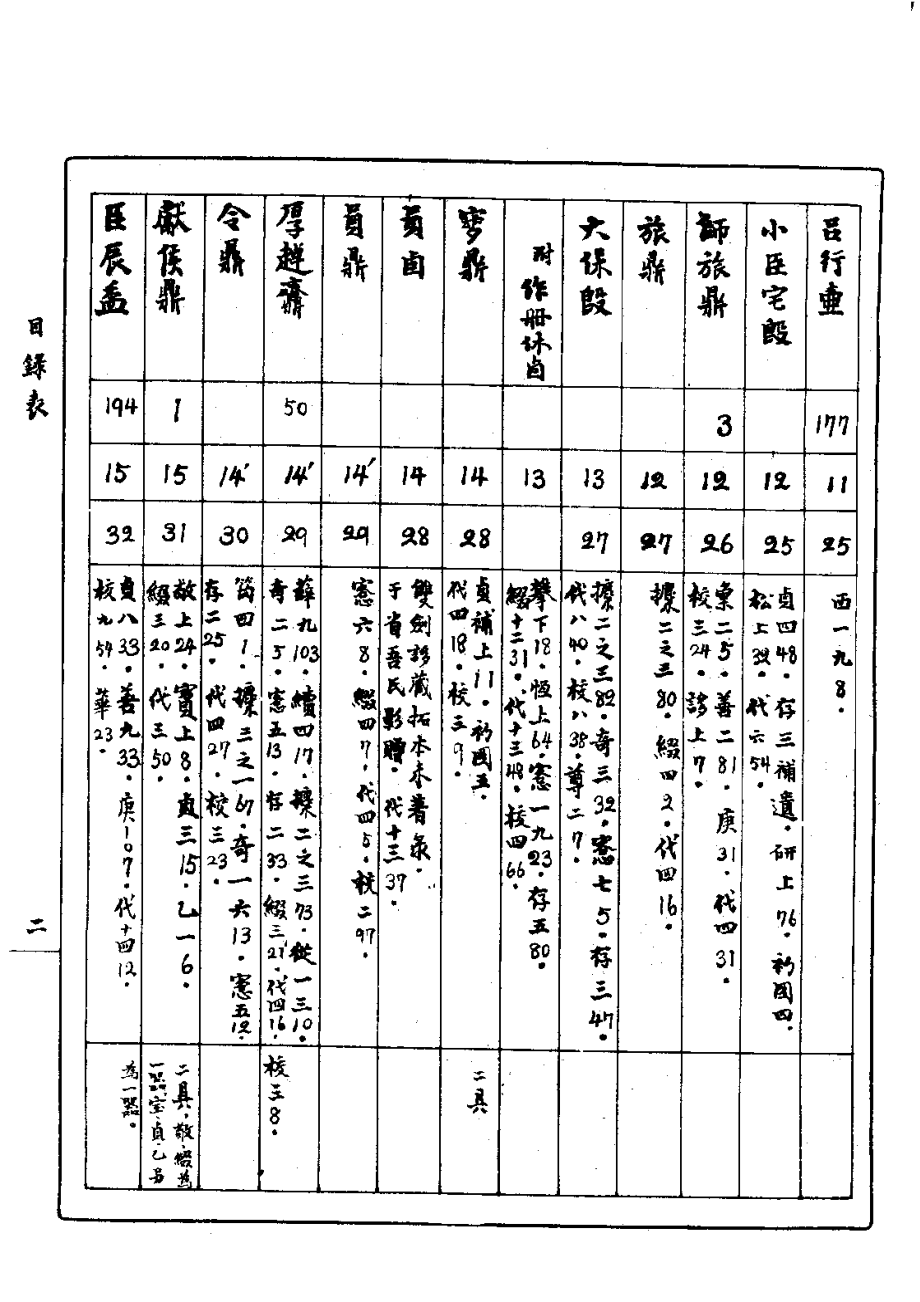 呂行壷
177
11
25
西一九8．
小臣宅𣪘
12
25
貞四48．存三補遺．研上76．衤國四．
松上38．代六54．
師旅鼎
3
12
26
彙二5．善二81．庚31．代四31．
校三24．謭上7．
旅鼎
12
27
攗二之三80．綴四2．代四16．
大保𣪘
13
27
攗二之三82．奇三32．愙七5．存三47．
代八40．校八38．尊二7．
附作冊休卣
13
攀下18．恆上64．愙一九23．存五80．
綴十二31．代十三48．校四66．
寧鼎
14
28
貞補上11．衤國五．
代四18．校三9．
二具
員卣
14
28
雙劍誃藏拓本未著彔．
于省吾氏影贈．代十三37．
員鼎
14′
29
愙六8．綴四7．代四5．校二97
厚趠齋
50
14′
29
薛九103．續四17．攗二之三73．從一三10．
奇二5．愙五13．存二33．綴三21．代四16．
校三8．
令鼎
14′
30
筠四1．攗三之一67．奇一六13．愙五12．
存二25．代四27．校三23．
獻侯鼎
1
15
31
敬上24．寶上8．貞三15．乙一6．
綴三20．代三50．
二具，敬．綴為
一器，宝．貞．乙另
為一器．
臣辰盉
194
15
32
貞八33．善九33．庚107．代十四12．
校九54．華23．
目錄表
二